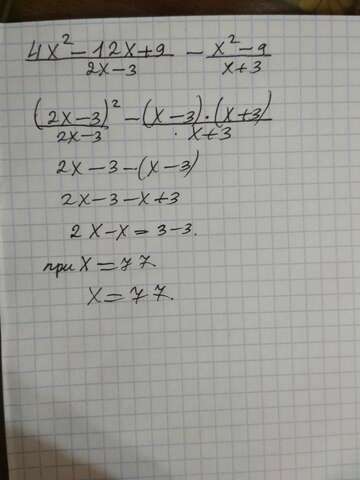 (4x² - 12x + 9)/(2x - 3) - (x² - 9)/(x + 3)
(2x - 3)²/(2x - 3) - (x - 3)·(x + 3)/(x + 3)
2x - 3 - (x - 3)
2x - 3 - x + 3
2x - x = 3 - 3.
при x = 77.
x = 77.